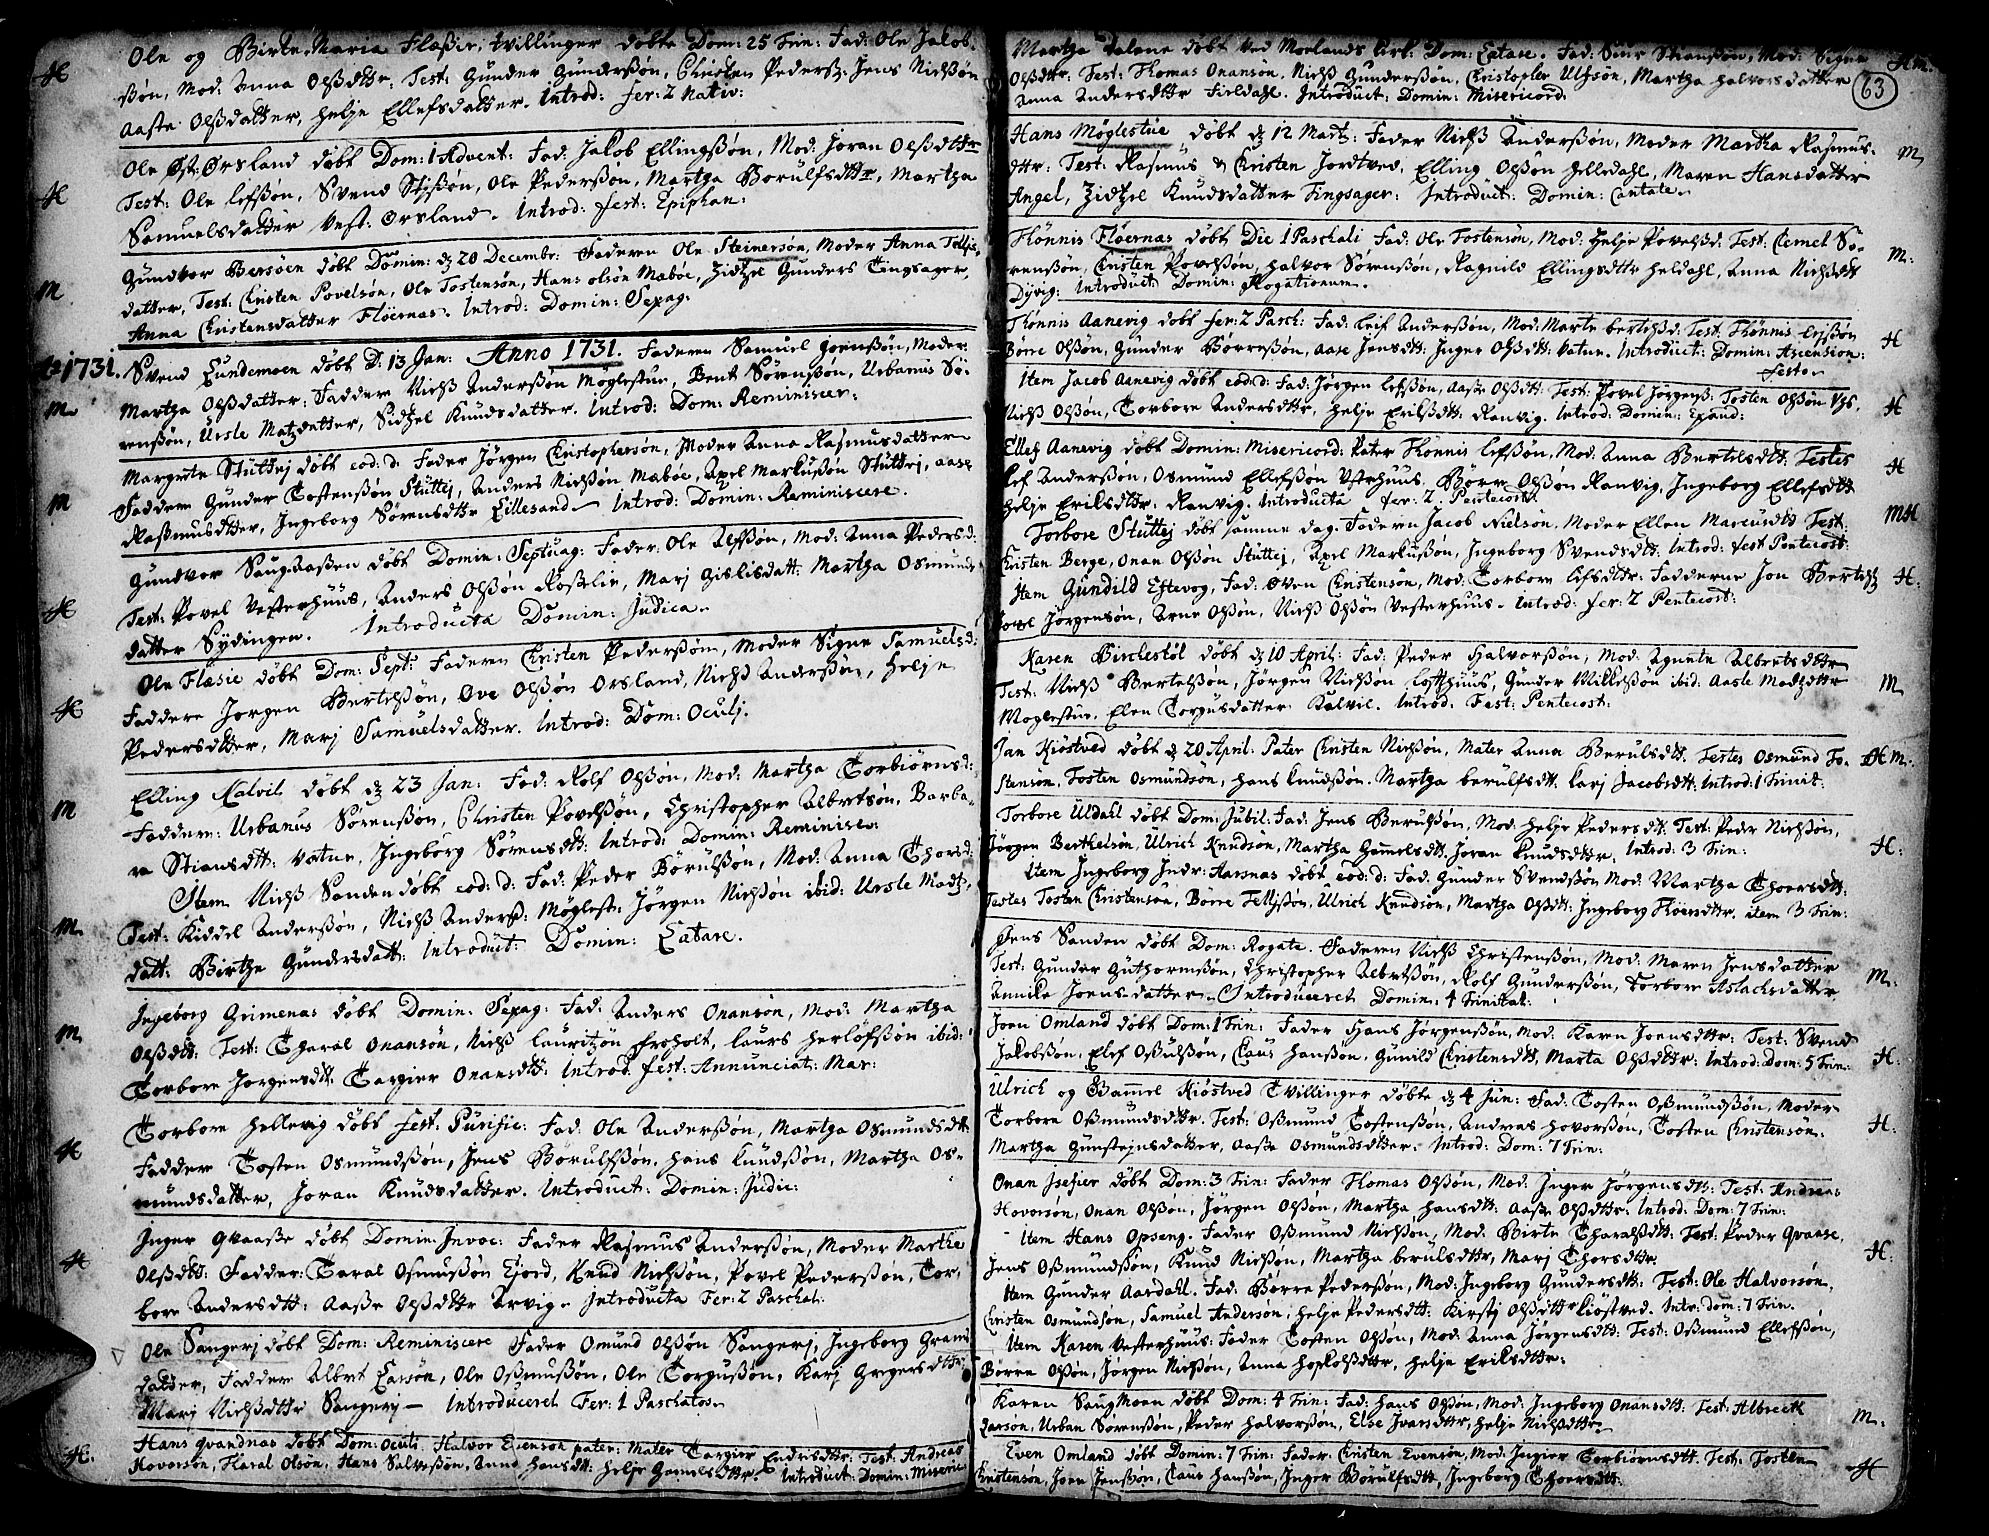 Ole og Birte Maria Flaßie, tvillinger döbte Dom: 25 Trin: Fad: Ole Jakob-
H
ßön, Mod: Anna Olßdttr, Test: Gunder Gunderßön, Christen Pederß: Jens Nielßön
Aaste Olßdatter, Helje Ellefsdatter. Introd: fer: 2 Nativ:
Ole Øst: Ørsland döbt Dom: 1 Advent: Fad: Jakob Ellingßön, Mod: Joran Olßdttr
H
Test: Ole Lefßön, Svend Ole Pederßon, Martha Börulfsdttr, Martha
Samuelsdatter Vest: Ørsland. Introd: fest: Epiphan:
Gundvor Bersöen döbt Domin: d 20 Decembr: Faderen Ole Steinersön, Moder Anna
M
datter, Test: Christen Povelsön, Ole Tostensön, Hans olsön Maböe, Zidtzel Gunders Tingsager,
Anna Christensdatter Flöernas. Introd: Domin: Sexag:
Ao 1731. Svend Lundemoen döbt D. 13 Jan: Anno 1731. Faderen Samuel Joensßön, Moder:
M
Martha Olßdatter: Faddere Nielß Anderßön Möglestue, Bent Sörenßön, Urbanus Sö-
renßön, Ursle Matzdatter, Sidtzel Knudsdatter. Introd: Dom: Reminiscer:
Margrete Stuttej döbt eod: d: Fader Jörgen Christophersön, Moder Anna Rasmusdatter
M
Faddere Gunder Tostenßön Stuttej, Anders Nielßön Maböe, Axel Markusßön Stuttej, Aase
Rasmusdtter, Ingeborg Sörensdttr Lillesand. Introd: Domin: Reminiscere.
Gundvor Saugaasen döbt Domin: Septuag: Fader: Ole Lefßön, Mod: Anna Pedersd:
H
Test: Povel Vesterhuus, Anders Olßön Marj Gislisdatt: Martha Osmunds
datter Sydingen. Introducta Domin: Judica.
Ole Flasie döbt Dom: Sept: Faderen Christen Pederßön, Moder Signe Samuelsd:
H
Faddere Jörgen Bertelßön, Ove Olßön Orsland, Nielß Anderßön, Helje
Pedersdtter, Marj Samuelsdatter. Introd: Dom: Oculj.
Elling Kalvil döbt d 23 Jan: Fad: Rolf Olßön, Mod: Martha Torbiörnsd:
M
Faddere: Urbanus Sörenßön, Christen Povelßön, Christopher Albretsön, Barba-
ra Stiansdtt: Vatne, Ingeborg Sörensdtt: Introd: Domin: Reminise:
Item Nielß Sanden döbt eod: d: Fad: Peder Börulßön, Mod: Anna Thorsd:
M.
Test: Kiddel Anderßön, Nielß Anderß: Möglest: Jörgen Nielßön ibid: Ursle Madtz
datt: Birthe Gundersdatt: Introduct: Domin: Lætare.
Ingeborg Grimenas döbt Domin: Sexag: Fad: Anders Onansön, Mod: Martha
M
Olßdtt: Test: Tharal Onansön, Nielß Lauritzön froholt, Laurs herlöfsßön ibid:
Torbore Jorgensdtt, Targier Onansdtt: Introd: fest: Annunciat: Mar:
Torbore Hellevig döbt fest: Purific: Fad: Ole Anderßön, Martha Osmundsdtt
H
Fadder Tosten Osmundßön, Jens Börulfßön, Hans Knudßön, Martha Os-
mundsdatter, Joran Knudsdatter. Introduct: Domin: Judic:
Inger Qvaaße döbt Domin: Invoc: Fader Rasmus Anderßön, Moder Marthe
H
Olßdtt: Fadder: Taral Osmußön Knud Nielßön, Povel Pederßön, Tor-
bore Andersdtt: Aaße Olßdttr Arvig. Introducta Fer: 2 Paschat:
Ole Sangerj döbt Dom: Reminiscere Fader Omund Olßön Sangerj, Ingeborg
datter, Faddere Albret Larsön, Ole Oßmußön, Ole Torgußön, Karj
Marj Nielßdttr Sangerj. Introduceret Fer: 1 Paschatos.
Hans qvandnas döbt Dom: Oculi. Halvor Evenson pater: Mater Targier Endresdttr: Test: Andreas
H.
Hovorsön, Haral Olsön, Hans Salveßön, Anne Hansdtt: Helje Gamelsdttr. Introduct: Domin: Miseric:
Martha Malene döbt ved Moelands Kirk: Dom: Lætare. Fad: Siur Stianßön, Mod: Signe
H M.
63
Olßdttr. Test: Thomas Onansön, Nielß Gunderßön, Christopher Ulfsön, Martha Halvorsdatter
Anna Andersdttr Introduct: Domin: Misericord:
Hans Möglestue döbt d 12 Martz: Fader Nielß Anderßön, Moder Martha Rasmus-
M
dttr: Test: Rasmus & Christen Jordtved, Elling Olßön Hilledahl, Maren Hansdatter
Angel, Zidtzel Knudsdatter Tingsager: Introduct: Domin: Cantate.
Thönnis Flöernas döbt Die 1 Paschali Fad: Ole Tostensön, Mod: Helje Povelßd. Test: Clemet Sö-
M.
renßön, Christen Povelßön, Halvor Sörenßön, Ragnild Ellingsdttr Heldahl, Anna Nielßdtt
Dyvig: Introduct: Domin: Rogationum.
Thönnis Aanevig döbt fer: 2 Pasch: Fad: Leif Anderßön, Mod: Marte bertelsd: Test: Thönnis Lefßön
H
Börre Olßön, Gunder Börreßön, Aase Jensdtt: Inger Olßdtt: Vatne. Introduct: Domin: Ascension:
festo.
Item Jacob Aanevig döbt eod: d: Fad: Jörgen Lefßön, Aaße Olßdtt: Test: Povel Jörgenß: Tosten Olßön
H
Nielß Olßön, Torbore Andersdttr, Helje Erikßdtt: Ranvig. Introd: Domin: Exaud:
Ellef Aanevig döbt Domin: Misericord: Pater Thönnis Lefßön, Mod: Anna Bertelsdtt: Testes
H
Lef Anderßön, Osmund Ellefßön Vesterhuus, Börre Olßön Ranvig, Ingeborg Ellefsdtt
Helje Eriksdttr: Ranvig. Introducta fer: 2. Pentecost:
Torbore Stuttej döbt samme dag. Faderen Jacob Nielsön, Moder Ellen Marcusdtt Test:
MH
Christen Berge, Onan Olßön Stuttej, Axel Markußön, Ingeborg Svendsdtt: Introd: fest Pentecost:
Item Gunild Eftevog, Fad: Oven Christensön, Mod: Torbore Lefsdttr: Fadderne Jon Bertelß
H:
Povel Jörgensön, Arne Olßön, Nielß Olßön Vesterhuus. Introd: fer: 2 Pentecost:
Karen Birchestöl döbt d 10 April: Fad: Peder Halvorßön, Mod: Agnete Albretsdttr
M
Test: Nielß Bertelßön, Jörgen Nielßön Lofthuus, Gunder Villeßön ibid: Aaste Madtzdttr
Möglestue, Elen Torgusdatter Kalvil. Introd: Fest: Pentecost:
Jan Kiöstved döbt d 20 April. Pater Christen Nielßön, Mater Anna Berulsdtt. Testes Osmund To-
H M.
stensön, Tosten Osmundsön, Hans Knudßön. Martha berulfsdtt. Karj Jacobsdtt: Introd: 1 Trinit:
Torbore Uldahl döbt Dom: Jubil: Fad: Jens Berulßön, Mod: Helje Pedersdtt: Test: Peder Nielßön,
H:
Jörgen Berthelsön, Ulrich Knudsön, Martha Gamelsdtt: Joran Knudsdttr. Introd: 3 Trin:
Item Ingeborg Indr: Aarsnas döbt eod: d: Fad: Gunder Svendßön Mod: Martha Thorsdtt:
Testes Tosten Christensön, Börre Telljßön, Ulrich Knudsön, Martha Olßdtt: Ingeborg item 3 Trin:
Jens Sanden döbt Dom: Rogate. Faderen Nielß Christenßön, Mod: Maren Jensdatter
M.
Test: Gunder Guthormßön, Christopher Albretßön, Rolf Gunderßön, Torbore Aslachsdatter,
Annike Joensdatter. Introduceret Domin: 4 Trinitat:
Joen Omland döbt Dom: 1 Trin: Fader Hans Jörgenßön, Mod. Karen Joensdttr: Test: Svend
H.
Jakobßön, Elef Oßulßön, Claus Hanßön, Gunild Christensdtt, Marta Olßdttr: Introd: Dom: 5 Trin:
Ulrich og Gammel Kiöstved Tvillinger döbte d 4 Jun: Fad: Tosten Oßmundßön, Moder
H.
Torbore Oßmundsdttr. Test: Oßmund Tostenßön, Andreas Hovorßön, Tosten Christensön:
Martha Gunstejnsdatter, Aaße Osmundsdtter. Introd: Dom: 7 Trin:
Onan Isefier döbt Dom: 3 Trin: Fader Thomas Olßön, Mod. Inger Jörgensdtt: Test: Andreas
Hovorsön, Onan Olßön, Jörgen Olßön, Martha Hansdtt: Aaße Olßdttr: Introd: Dom: 7 Trin:
Item Hans Opseng. Fader Oßmund Nielßön, Mod: Birte Tharalßdtt: Test: Peder Qvaase,
H:
Jens Oßmundßön, Knud Nielßön, Martha berulsdttr, Marj Thorsdttr.
Item Gunder Aardahl. Fad: Börre Pederßön, Mod: Ingeborg Gundersdtt: Test: Ole Halvorsön,
Christen Osmundsön, Samuel Andersön, Helje Pedersdtt: Kirstj Olßdttr Kiöstved. Intr: dom: 7 Trin.
Item Karen Vesterhuus: Fader Tosten Olßön, Mod: Anna Jörgensdtt: Test: Oßmund Ellefßön,
Börre Olßön, Jörgen Nielßön, Anna Helje Eriksdttr:
Karen SaugMoen döbt Dom: 4 Trin: Fad: Hans Olßön, Mod: Ingeborg Onansdtt: Test: Albrecht
M.
Larson, Urban Sörenßön, Peder Halvorßön, Else Ivarsdttr, Helje Nielßdttr.
Even Omland döbt Domin: 7 Trin: Fader: Christen Evensön, Mod: Ingier Torbiörnsdtt. Test: Tosten
H
Christenson, Joen Jenßön, Claus Hanßön, Inger Börulfsdtt, Ingeborg Thoersdtt.